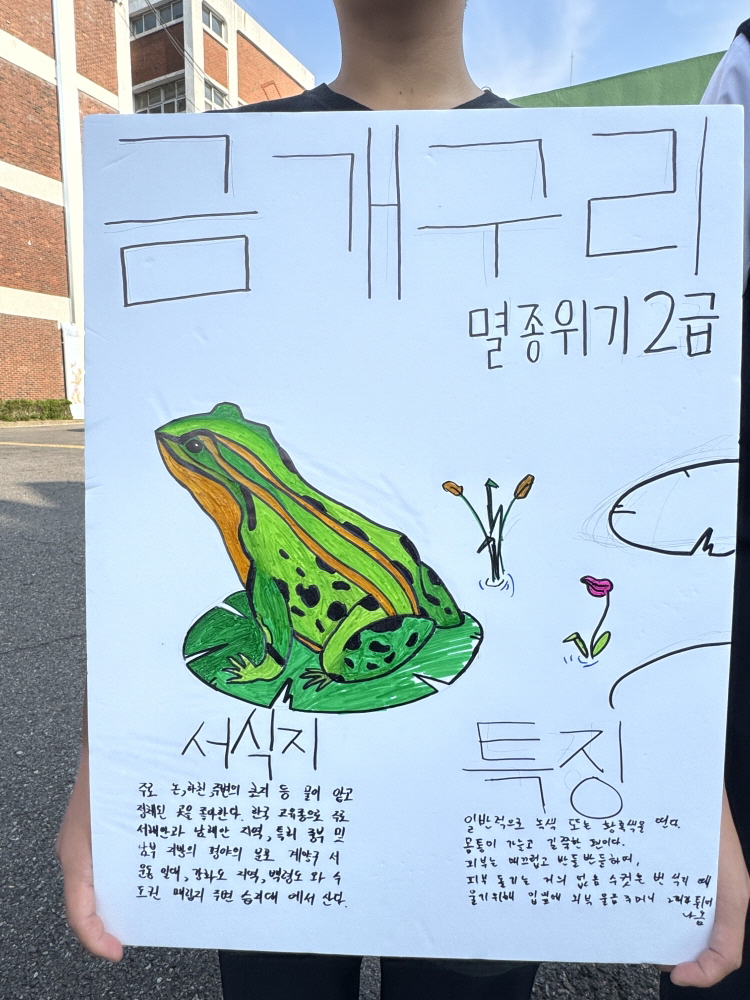 금개구리
멸종위기 2급
서식지
주로 논, 하천 주변의 초지 등 물이 얕고
정체된 곳을 좋아한다. 한국 고유종으로 주로
서해안과 남해안 지역, 특히 중부 및
남부 지방의 평야에 분포 계양구 서
운동 일대, 강화도 지역, 백령도 와 수
도권 매립지 주변 습지대 에서 산다.
특징
일반적으로 녹색 또는 황록색을 띤다.
몸통이 가늘고 길쭉한 편이다.
피부는 매끄럽고 반들반들하며,
피부 돌기는 거의 없음 수컷은 번식기 때
울기위해 입 옆에 외부 울음주머니 튀어
나옴